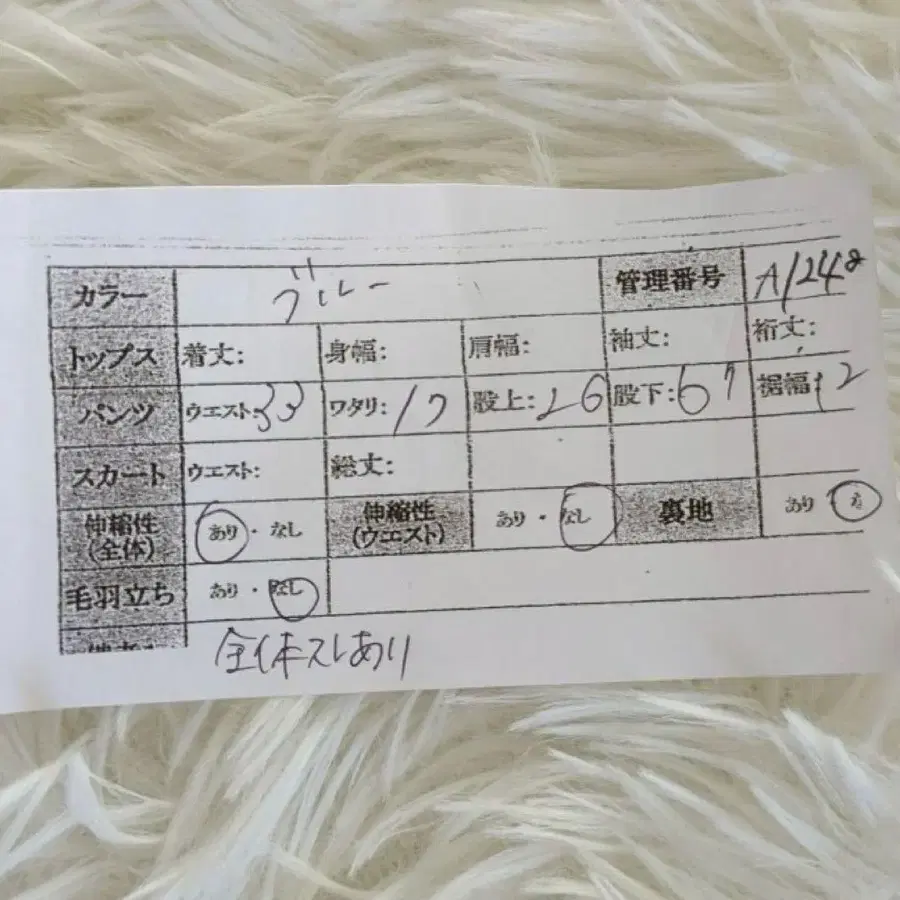 カラー ブルー 管理番号 A1248
トップス 着丈: 身幅: 肩幅: 袖丈: 裄丈:
パンツ ウエスト: 33 ワタリ: 17 股上: 26 股下: 67 裾幅: 12
スカート ウエスト: 総丈:
伸縮性(全体) あり・なし 伸縮性(ウエスト) あり・なし 裏地 あり・な
毛羽立ち あり・なし
全体スレあり